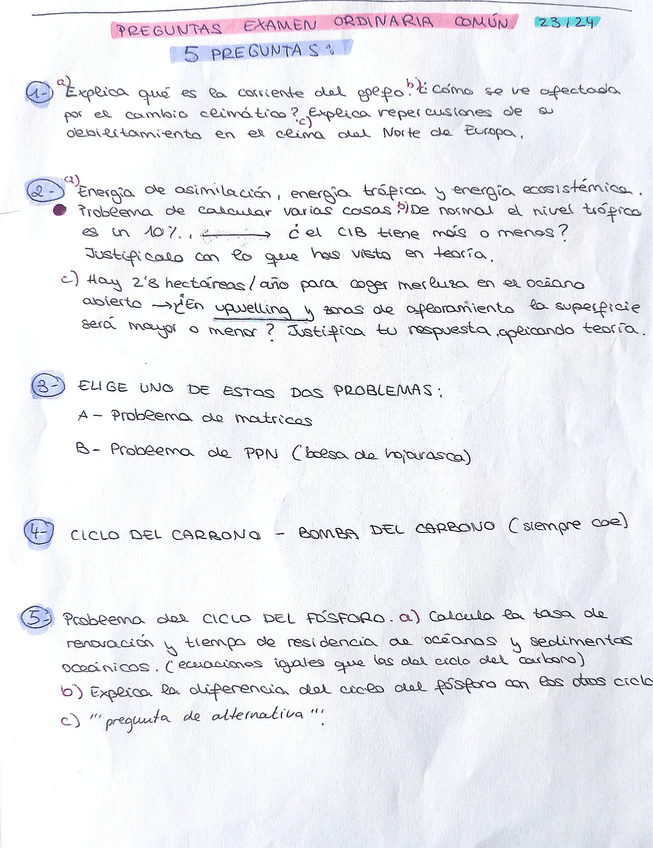 PREGUNTAS EXAMEN ORDINARIA COMÚN 23/24
5 PREGUNTAS:
1- a) Explica qué es la corriente del golfo. b) ¿Cómo se ve afectada
por el cambio climático? c) Explica repercusiones de su
debilitamiento en el clima del Norte de Europa.
2- a) Energía de asimilación, energía trófica y energía ecosistémica.
Problema de calcular varias cosas. b) De normal el nivel trófico
es un 10%. ⟷ ¿el CIB tiene más o menos?
Justifícalo con lo que has visto en teoría.
c) Hay 2'8 hectáreas/año para coger merluza en el océano
abierto → ¿En upwelling y zonas de afloramiento la superficie
será mayor o menor? Justifica tu respuesta, aplicando teoría.
3- ELIGE UNO DE ESTOS DOS PROBLEMAS:
A- Problema de matrices
B- Problema de PPN (bolsa de hojarasca)
4- CICLO DEL CARBONO - BOMBA DEL CARBONO (siempre cae)
5- Problema del CICLO DEL FÓSFORO. a) Calcula la tasa de
renovación y tiempo de residencia de océanos y sedimentos
oceánicos. (ecuaciones igales que las del ciclo del carbono)
b) Explica la diferencia del ciclo del fósforo con los otros ciclo
c) "' pregunta de alternativa "'.